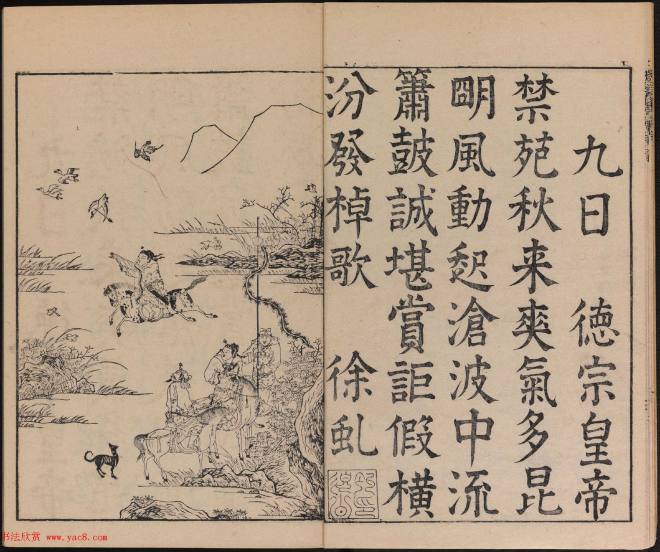 九日 德宗皇帝
禁苑秋来爽氣多昆
明風動起滄波中流
簫鼓誠堪賞詎假橫
汾發棹歌 徐虬
书法欣赏 www.yac8.com